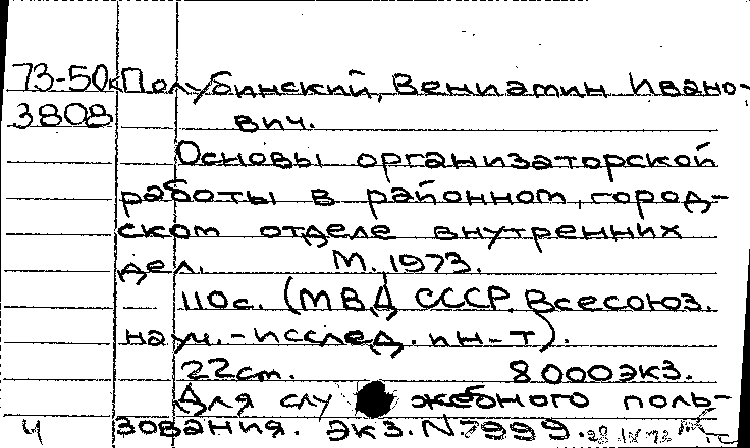 73-50к Полубинский, Вениамин Ивано-
3808 вич.
Основы организаторской
работы в районном, город-
ском отделе внутренних
дел. М. 1973.
110с. (МВД СССР. Всесоюз.
науч.-исслед. ин-т).
22см. 8000экз.
Для служебного поль-
ч зования. экз. N7999.